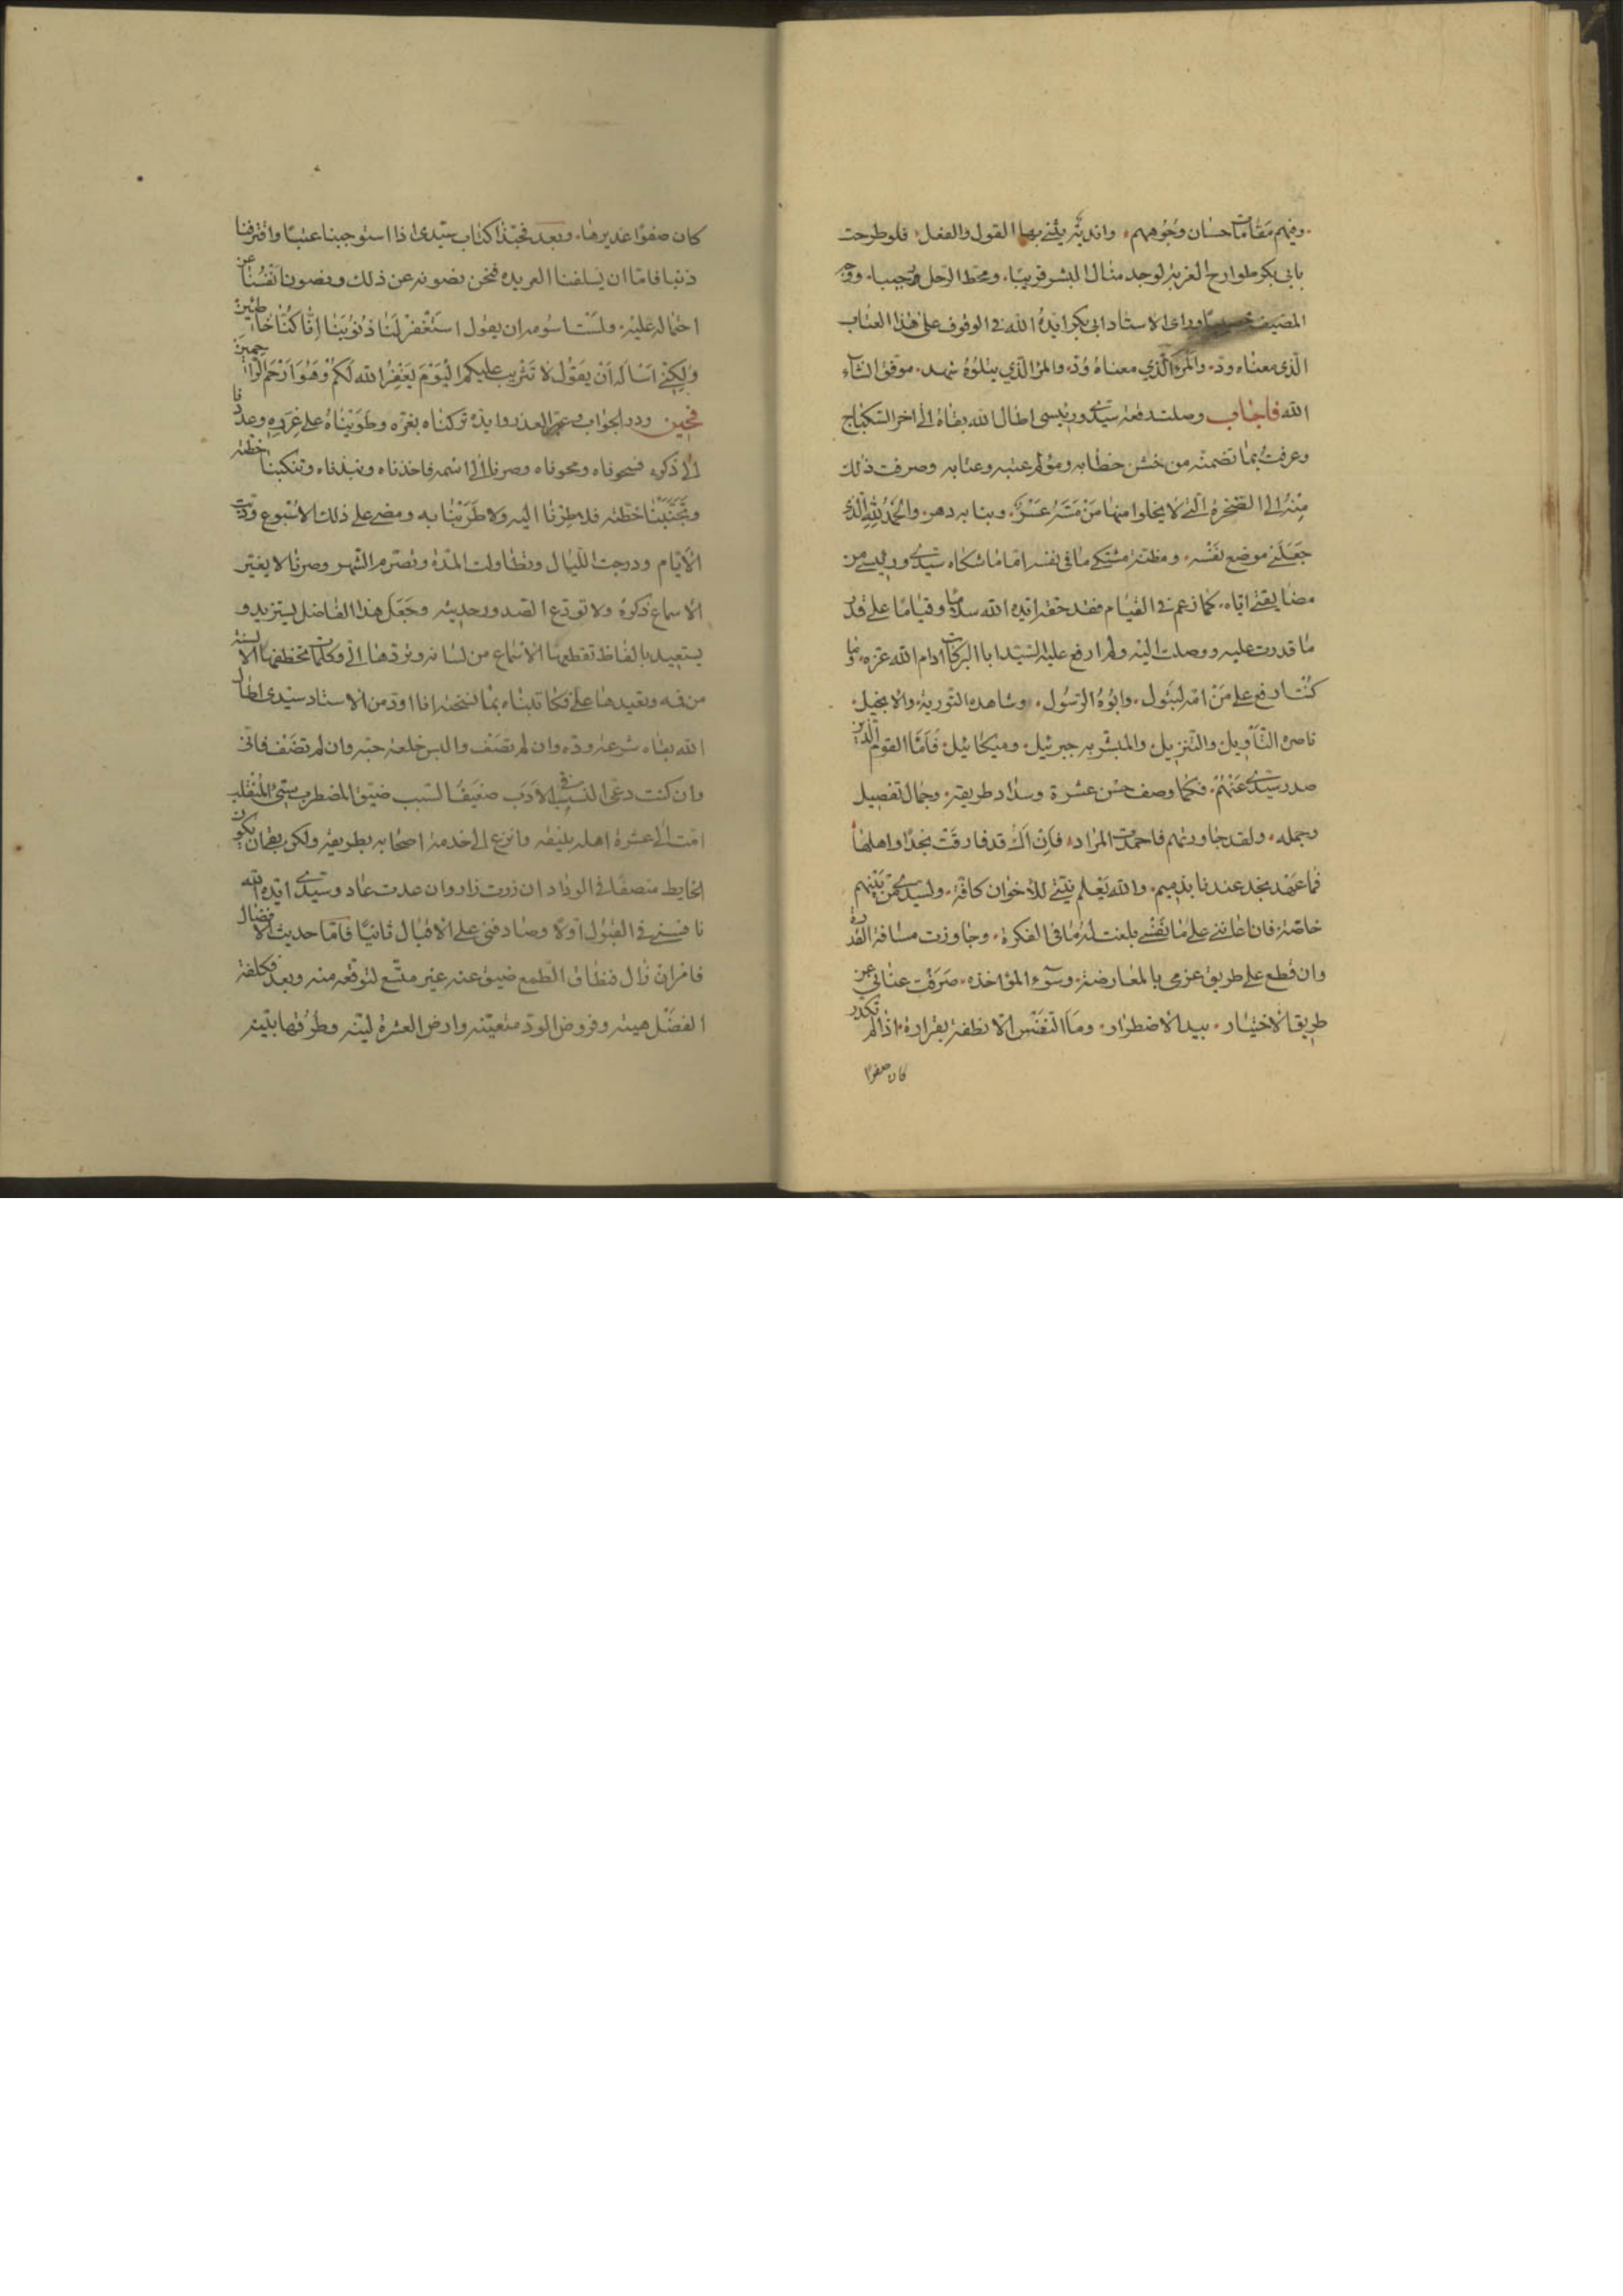 وفيهم مَقامات حسان وجوههم، وانديةٌ يثنى بها القول والفعل، فلو طرحت
بابى بكر طوارح الغربة لوجد منال البشر قريبًا، ومحط الرحل رحيبا، ووجه
المضيف خصيبًا وراى الاستاد ابى بكر ايدهُ الله فى الوقوف على هذا العتاب
الّذى معناه ودّ، والمرّ الّذي معناهُ وُدّ، والمرّ الّذي يتلوُهُ شهد، موفق انشاء
الله فاجاب وصلت رقعة سيّدى ورئيسى اطال الله بقاهُ الى اخر السكباج
وعرفتُ بما تضمنه من خشن خطابه ومؤلم عتبه وعتابه وصرفت ذلك
مِنْهُ الى الضجْرة الّتى لا يخلوا منها مَنْ مَسَّهُ عُسْر، ونبا به دهر، والحمدُ للهِ الّذى
جَعَلَنى موضع نَفْسه، ومظنّة مشتكى ما فى نفسه امّا ما شكاه سيّدى ورئيسى من
مضايقتى ايّاه، كما زعم فى القيام فقد حقه ايده الله سلامًا وقيامًا على قدر
ما قدرت عليه ووصلت اليه ولم ارفع عليه السّيّد ابا البركات ادام الله عزه، وما
كنت ارفع على مَنْ امّه البتول، وابُوهُ الرّسُول، وشاهده التّورية، والانجيل،
ناصرهُ التّأويل والتّنزيل، والمبشّر به جبرئيل، وميكائيل، فَامَّا القوم الّذين
صدر سيّدى عَنْهُمْ، فكما وصف حسْن عشرة وسداد طريقة، وجمال تفصيل
وجمله، ولقد جاورتهم فاحمدت المراد، فَاِنْ اَكُ قد فارقَتُ نجدًا واهلهَا
فما عَهْد نجد عندنا بذميم، والله يَعْلم نيّتى للأخوان كافّة، ولسيّدى من بَيْنهم
خاصّة، فان اعاننى على مَا نَفْسى بلغت له ما فى الفكرة، وجاوزت مسافة القدرة
وان قطع على طريق عزمى بالمعارضة، وسُوء المؤاخذه، صَرَفْت عنانى عن
طريق الاختيار، بيد الاضطرار، ومَا النَفْس الّا نطفة بقرارة، اذا لم تكدر
كان صفوًا
كان صفوًا غديرها، وبَعد فحبّذا كتاب سيّدى اذا استوجبنا عتبًا واقترفنا
ذنبا فامّا ان يسلفنا العربده فنحن نصونه عن ذلك ونصون انفُسنا عن
احتماله عَليْه، ولسْت اسومه ان يقول استَغْفِرْ لَنَا ذنُوُبَنَا اِنّا كُنّا خاطئين
ولكِنّى اسْاله اَنْ يقوُل لا تَثْريب عليكم اليَوْمَ يَغْفِرُ الله لَكمْ وَهُوَ اَرْحَم الرّاحمينَ
فحين ورد الجواب وعين العذر رمده تركناه بعُرّه وطَوَيْناهُ على غَرّهِ وعمدنا
الى ذكره فسحوناه ومحوناه وصرنا الى اسْمه فاخذناه ونبذناه وتنكبنا خطّته
وتجَنّبنا خطّته فلا طِرْنا اليه ولا طَرَيْنا به ومضى على ذلك الاسْبوع ودبّت
الأيّام ودرجت اللّيالى وتطاولت المدّة وتصّرم الشّهر وصرنا لا يعير
الاسماع ذكرهُ ولا نودّع الصّدور حديثه وجَعَل هذا الفاضل يستزيد و
يستعيد بالفاظ تقطعها الاسْماع من لسانه وتردّها الىّ وكلمات تخطفها الالسنة
من فمه وتعيدها علىّ فكاتبناه بما نسخته انا اَود من الاستاد سيّدى اطال
الله بقاه شرعة ودّه وان لم تصَف والبس خلعة حبّه وان لم تضَف فانّى
وان كنت دعىّ النّسب فى الأدَب ضعيفَ السّبب ضيّق المضطرب سيّئ المنقلب
امتّ الى عشرة اهله بليقه وانزع الى خدمة اصحابه بطريقة ولكن بقى ان يكون
الخليط منصفًا فى الوداد ان زرت زار وان عدت عاد وسيّدى ايّده الله
ناقشنى فى القبُول اوّلًا وصارفنى على الاقبال ثانيًا فَامّا حديث الانزال
فامْر انزال فنطاق الطّمع ضيق عنه غير متّسع لتوقّعه منه وبعد فكلفة
الفضْل هيّنه وفروض الودّ متعيّنه وارض العشرة ليّنه وطُرُقها بيّنه